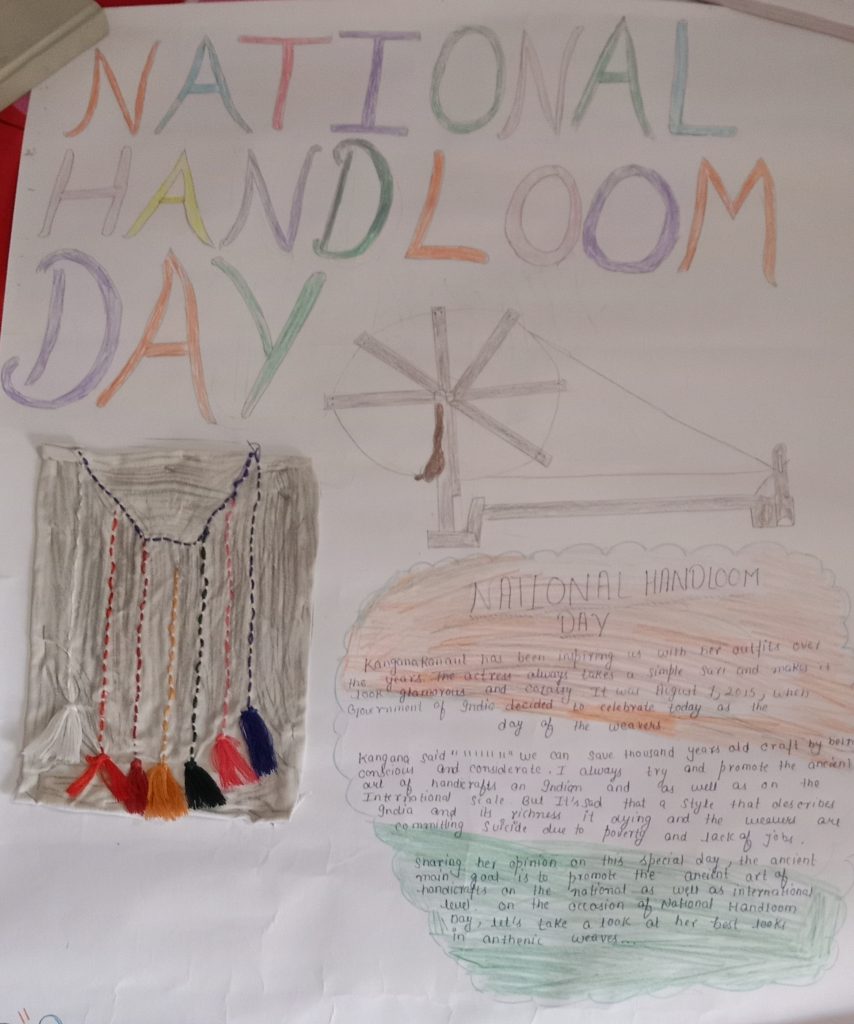 NATIONAL
HANDLOOM
DAY
NATIONAL HANDLOOM
DAY
Kangana Ranaut has been inspiring us with her outfits over
the years. The actress always takes a simple Sari and makes it
look glamorous and It was August 7, 2015, when
Government of India decided to celebrate today as the
day of the weavers
Kangana said " we can save thousand years old craft by being
conscious and considerate. I always try and promote the ancient
art of handcrafts on Indian and as well as on the
International scale. But It's sad that a style that describes
India and its richness it dying and the weavers are
commiting suicide due to poverty and lack of jobs.
Sharing her opinion on this special day, the ancient
main goal is to promote the ancient art of
handicrafts on the national as well as international
level on the occasion of National Handloom
Day, let's take a look at her best looks
in anthenic weaves...